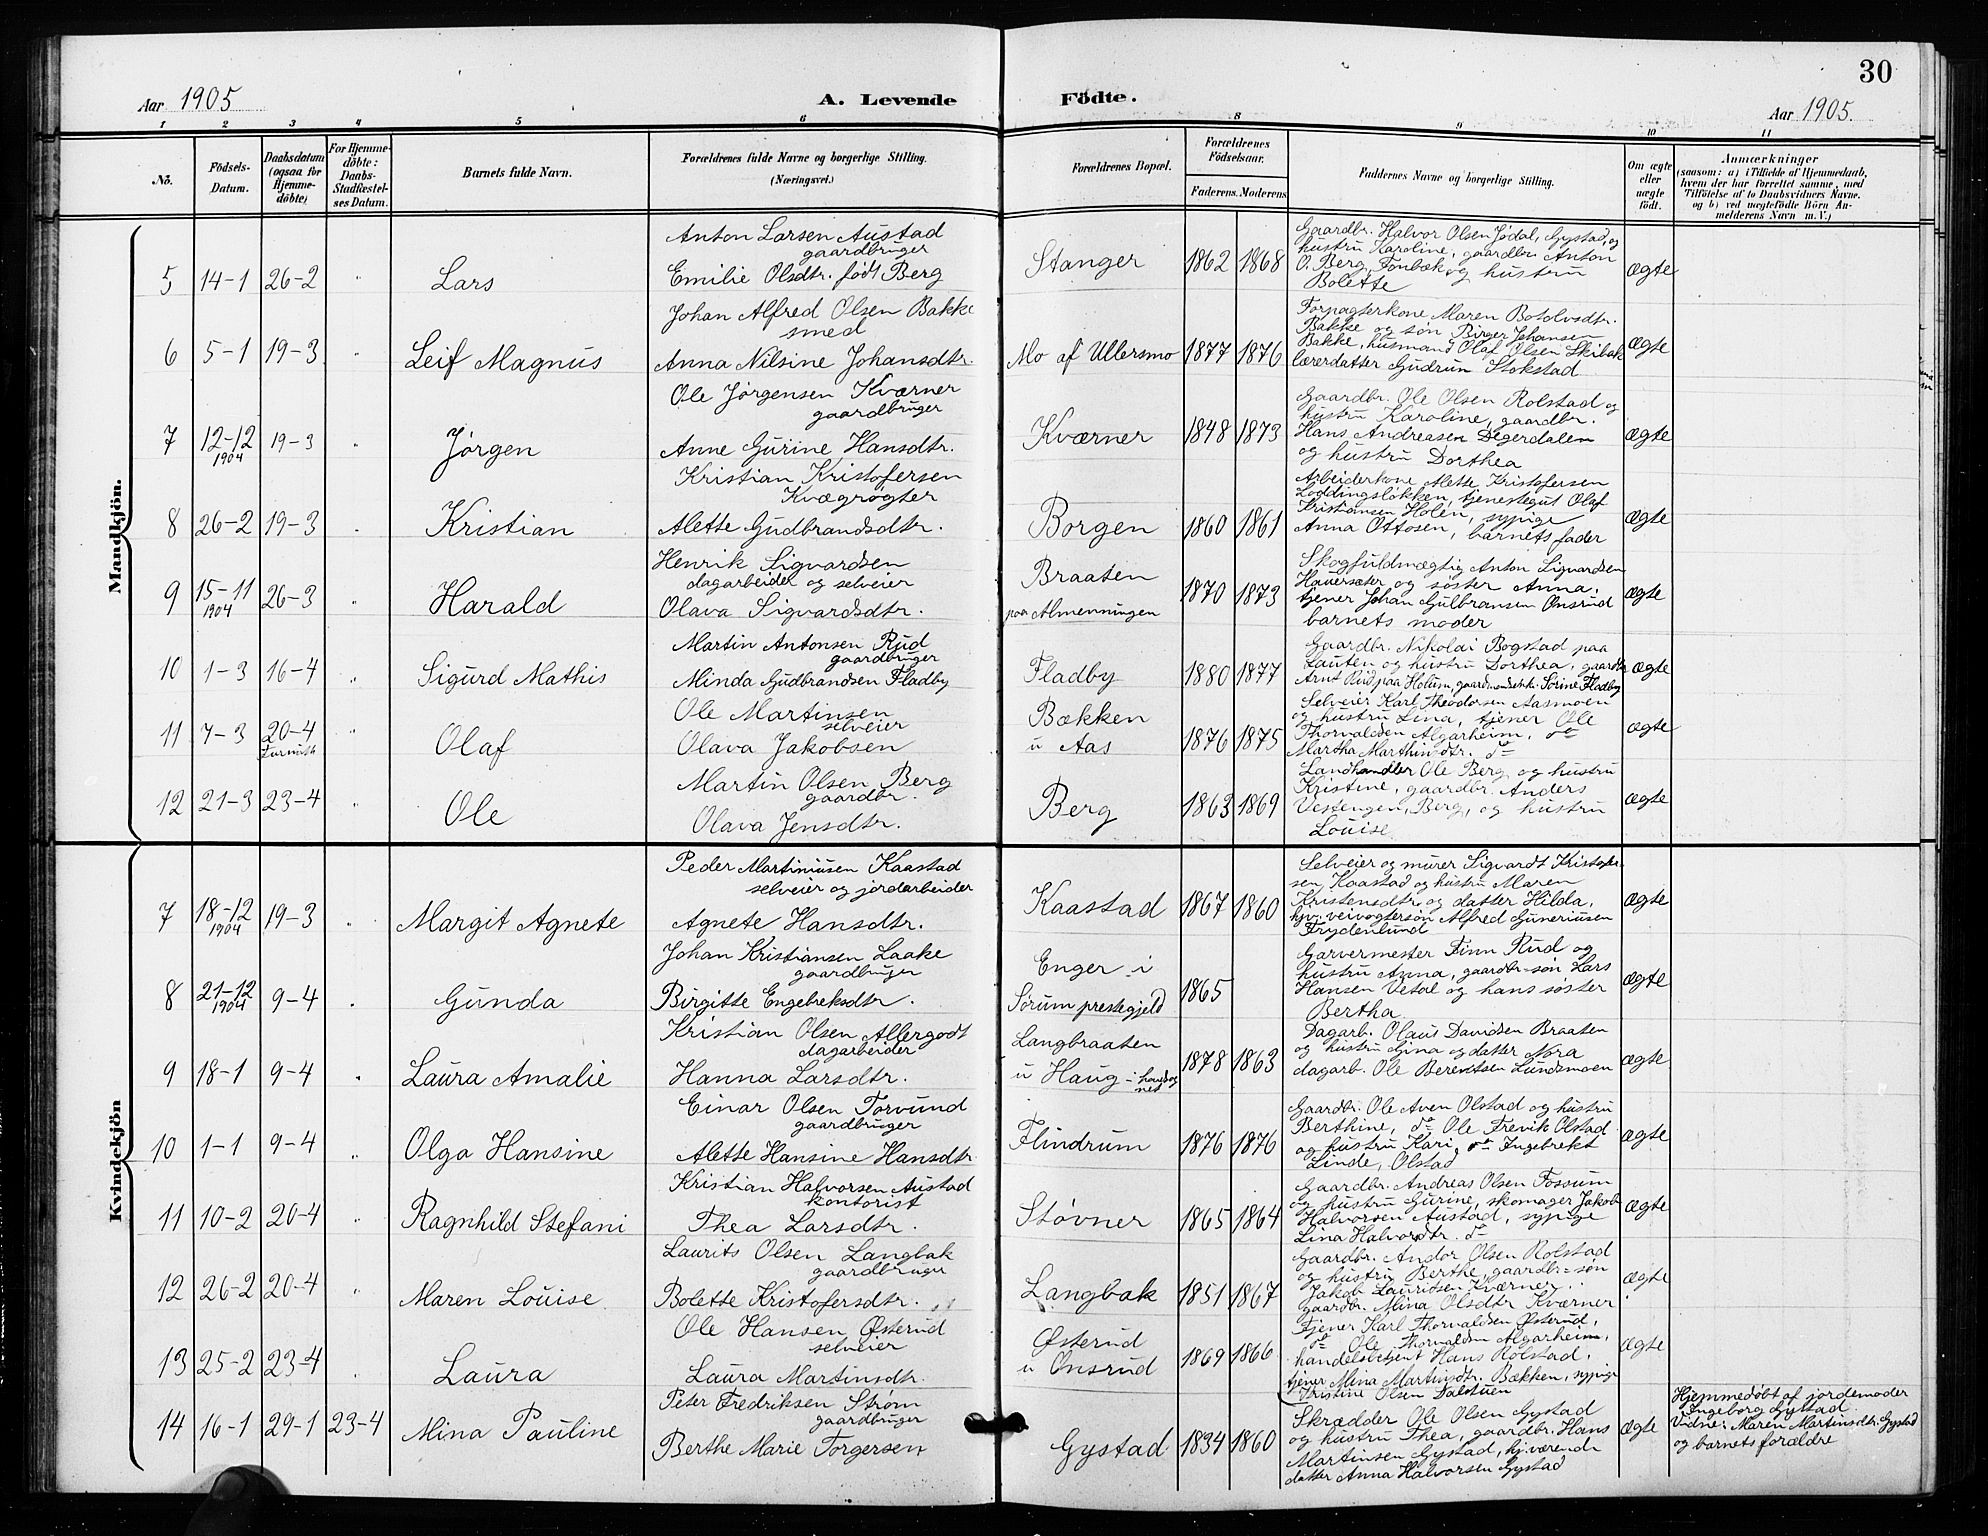 30
Aar 1905
A. Levende Födte.
Aar 1905.
1 2 3 4 5 6 8 9 10 11
No.
Födsels-Datum.
Daabsdatum (ogsaa for Hjemmedöbte)
For Hjemmedöbte: Daabs-Stadfæstelses Datum.
Barnets fulde Navn.
Forældrenes fulde Navne og borgerlige Stilling.
(Næringsvei.)
Forældrenes Bopæl.
Forældrenes Födselsaar.
Faderens. Moderens
Faddernes Navne og borgerlige Stilling.
Om ægte eller uægte födt.
Anmærkninger
(saasom: a) i Tilfælde af Hjemmedaab,
hvem der har forrettet samme, med
Tilföielse af to Daabsvidners Navne.
og b) ved uægtefödte Börn An-
melderens Navn m.V.)
Mandkjön.
5 14-1 26-2 " Lars
Anton Larsen Austad
gaardbruger
Emilie Olsdtr. født Berg
Stanger 1862 1868
Gaardbr. Halvor Olsen Jødal, Gystad, og
hustru Karoline, gaardbr. Anton
O. Berg, Fonbæk og hustru
Bolette
ægte
6 5-1 19-3 " Leif Magnus
Johan Alfred Olsen Bakke
smed
Anna Nilsine Johansdtr.
Mo af Ullersmo 1877 1876
Forpagterkone Maren Botolvsdtr.
Bakke og søn Birger Johanse
Bakke, husmand Olaf Olsen Skibak
lærerdatter Gudrun Stokstad
ægte
7 12-12 1904 19-3 " Jørgen
Ole Jørgensen Kværner
gaardbruger
Anne Gurine Hansdtr.
Kværner 1848 1873
Gaardbr. Ole Olsen Rolstad og
hustru Karoline, gaardbr.
Hans Andreasen Degerdalen
og hustru Dorthea
ægte
8 26-2 19-3 " Kristian
Kristian Kristofersen
Kvægrøgter
Alette Gudbrandsdtr.
Borgen 1860 1861
Arbeiderkone Alette Kristofersen
Loddingsløkken, tjenestegut Olaf
Kristiansen Holen, sypige
Anna Ottosen, barnets fader
ægte
9 15-11 1904 26-3 " Harald
Henrik Sigvardsen
dagarbeider og selveier
Olava Sigvardsdtr.
Braaten
paa Almenningen 1870 1873
Skogfuldmægtig Anton Sigvardsen
Haversæter og søster Anna,
tjener Johan Gulbransen Onsrud
barnets moder
ægte
10 1-3 16-4 " Sigurd Mathis
Martin Antonsen Rud
gaardbruger
Minda Gudbrandsen Fladby
Fladby 1880 1877
Gaardbr. Nikolai Bogstad paa
Lauten og hustru Dorthea, gaardbr
Arnt Rud paa Holum, Sorine Fladby
ægte
11 7-3 20-4 Furuseth " Olaf
Ole Martinsen
selveier
Olava Jakobsen
Bækken
u Aas 1876 1875
Selveier Karl Theodorsen Aasmoen
og hustru Lina, tjener Ole
Thorvaldsen Algarheim, do
Martha Marthinsdtr. do
ægte
12 21-3 23-4 " Ole
Martin Olsen Berg
gaardbr.
Olava Jensdtr.
Berg 1863 1869
Landhandler Ole Berg og hustru
Kristine, gaardbr. Anders
Vestengen, Berg, og hustru
Louise
ægte
Kvindekjön
7 18-12 1904 19-3 " Margit Agnete
Peder Martiniusen Kaastad
selveier og jordarbeider
Agnete Hansdtr.
Kaastad 1867 1860
Selveier og murer Sigvardt Kristofer-
sen Kaastad og hustru Maren
Kristensdtr. og datter Hilda,
hjv. veivogtersøn Alfred Guneriusen
Frydenlund
ægte
8 21-12 1904 9-4 " Gunda
Johan Kristiansen Laake
gaardbruger
Birgitte Engebreksdtr.
Enger i
Sørum prestegjeld 1865
Garvermester Finn Rud og
hustru Anna, gaardbr-søn Lars
Hansen Vetal og hans søster
Bertha
ægte
9 18-1 9-4 " Laura Amalie
Kristian Olsen Allergodt
dagarbeider
Hanna Larsdtr.
Langbraaten
u Haug 1878 1863
Dagarb. Olaus Davidsen Braaten
og hustru Gina og datter Nora
dagarb. Ole Berentsen Lundsmoen
ægte
10 1-1 9-4 " Olga Hansine
Einar Olsen Torvund
gaardbruger
Alette Hansine Hansdtr
Flindrum 1876 1876
Gaardbr. Ole Aven Olstad og hustru
Berthine, do Ole Trevik Olstad
og hustru Kari, do Ingebrekt
Linde, Olstad
ægte
11 10-2 20-4 " Ragnhild Stefani
Kristian Halvorsen Austad
kontorist
Thea Larsdtr.
Støvner 1865 1864
Gaardbr. Andreas Olsen Fossum
og hustru Gurine, skomager Jakob
Halvorsen Austad, sypige
Lina Halvordtr. do
ægte
12 26-2 20-4 " Maren Louise
Laurits Olsen Langbak
gaardbruger
Bolette Kristofersdtr.
Langbak 1851 1867
Gaardbr. Andor Olsen Rolstad
og hustru Berthe, gaardbr-søn
Jakob Lauridsen Kværner
gaardbr. Mina Olsdtr Kværner
ægte
13 25-2 23-4 " Laura
Ole Hansen Østerud
selveier
Laura Martinsdtr.
Østerud
u Onsrud 1869 1866
Tjener Karl Thorvaldsen Østerud,
do Ole Thorvaldsen Algarheim,
handelsbetjent Hans Rolstad,
tjener Mina Martinsdtr. Bækken, sypige
Kristine Olsen Dalstuen
ægte
14 16-1 29-1 23-4 Mina Pauline
Peter Fredriksen Strøm
gaardbruger
Berthe Marie Torgersen
Gystad 1834 1860
Skrædder Ole Olsen Gystad
og hustru Thea, gaardbr. Hans
Martinsen Gystad, hj.værende
datter Anna Halvorsen Gystad
ægte
Hjemmedøbt af jordemoder
Ingeborg Gystad.
Vidne: Maren Martinsdtr. Gystad
og barnets forældre